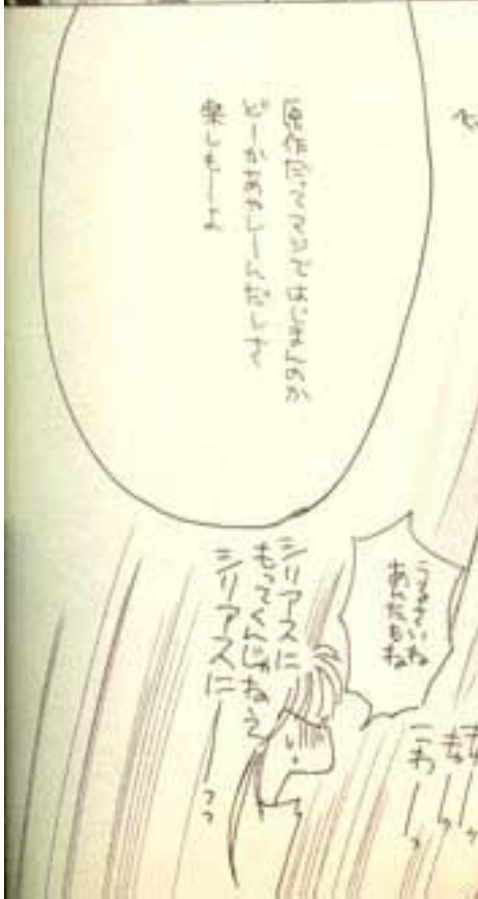 原作だってマジではじまんのか
どーかあやしーんだしさ
楽しもーよ
うるさいね
あんたもね
シリアスに
もってくんじゃねぇ
シリアスにーっっ